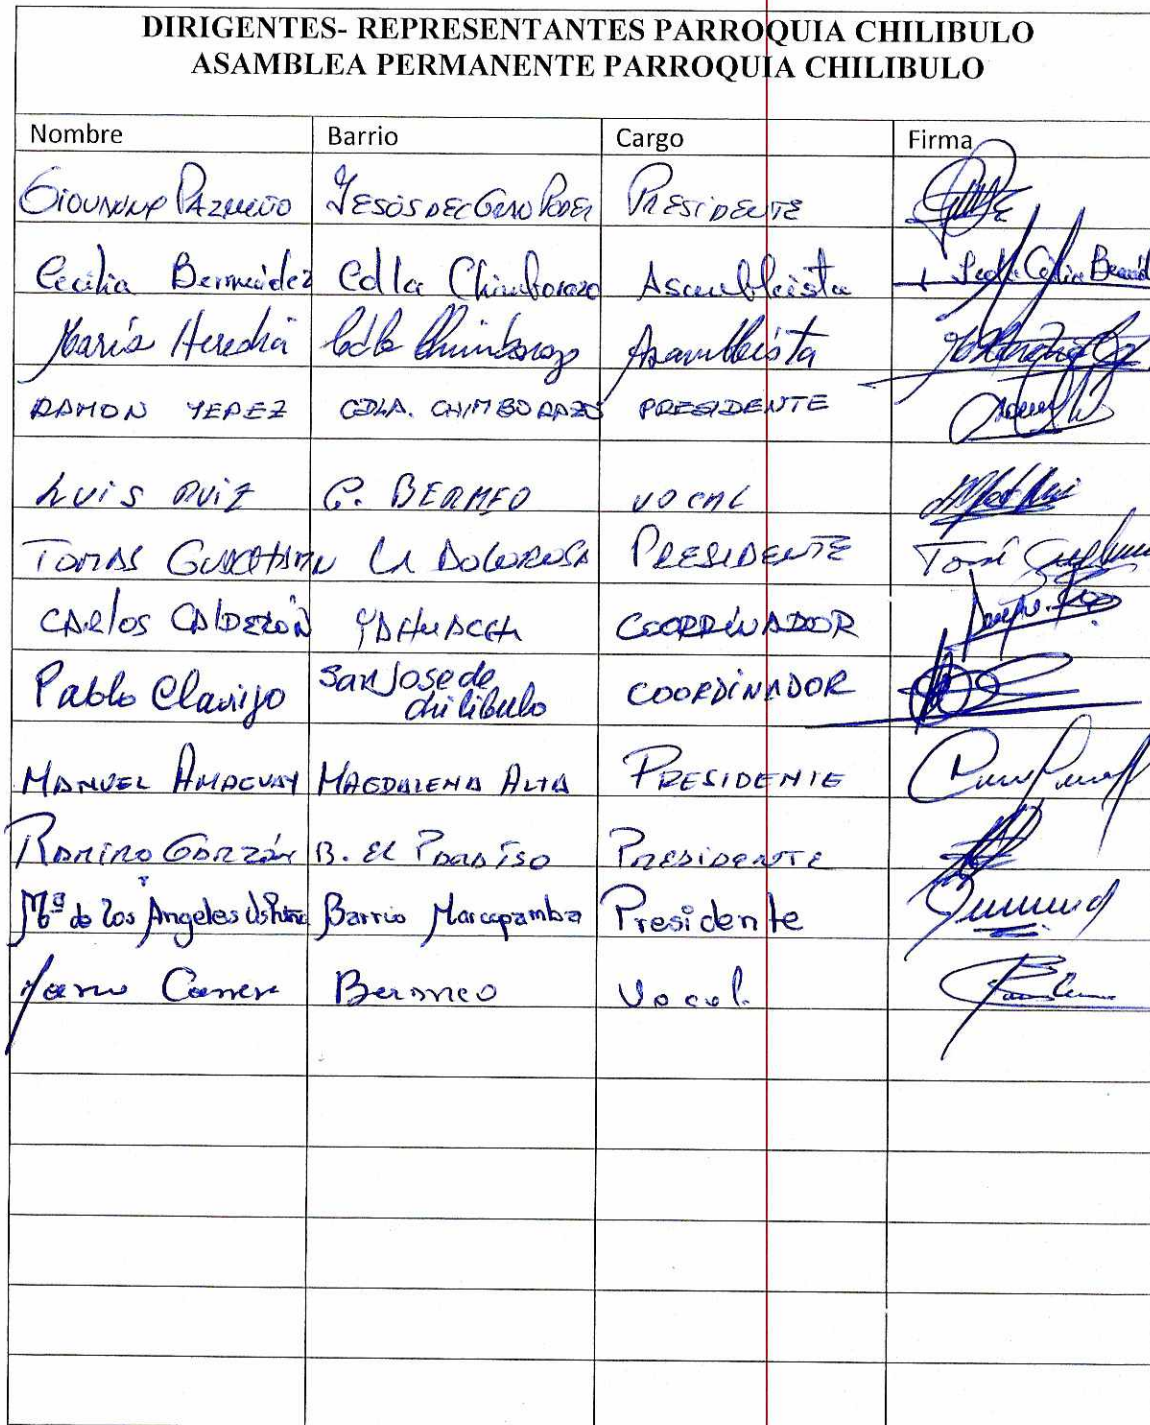 DIRIGENTES- REPRESENTANTES PARROQUIA CHILIBULO
ASAMBLEA PERMANENTE PARROQUIA CHILIBULO
Nombre Barrio Cargo Firma
Giovanny Pazmiño Jesús del Gran Poder Presidente
Cecilia Bermúdez Cdla Chimborazo Asambleista
María Heredia Cdla Chimborazo Asambleísta
RAMON YEPEZ CDLA. CHIMBORAZO PRESIDENTE
Luis Ruiz G. BERMEO VOCAL
TOMAS LA DOLOROSA PRESIDENTE
CARLOS CALDERÓN YAHUACHI COORDINADOR
Pablo Clavijo San Jose de chilibulo COORDINADOR
MANUEL AMAGUAY MAGDALENA ALTA PRESIDENTE
RAMIRO GARZÓN B. EL PARAÍSO PRESIDENTE
Mª de los Ángeles Barrio Marcopamba Presidente
Bermeo Vocal